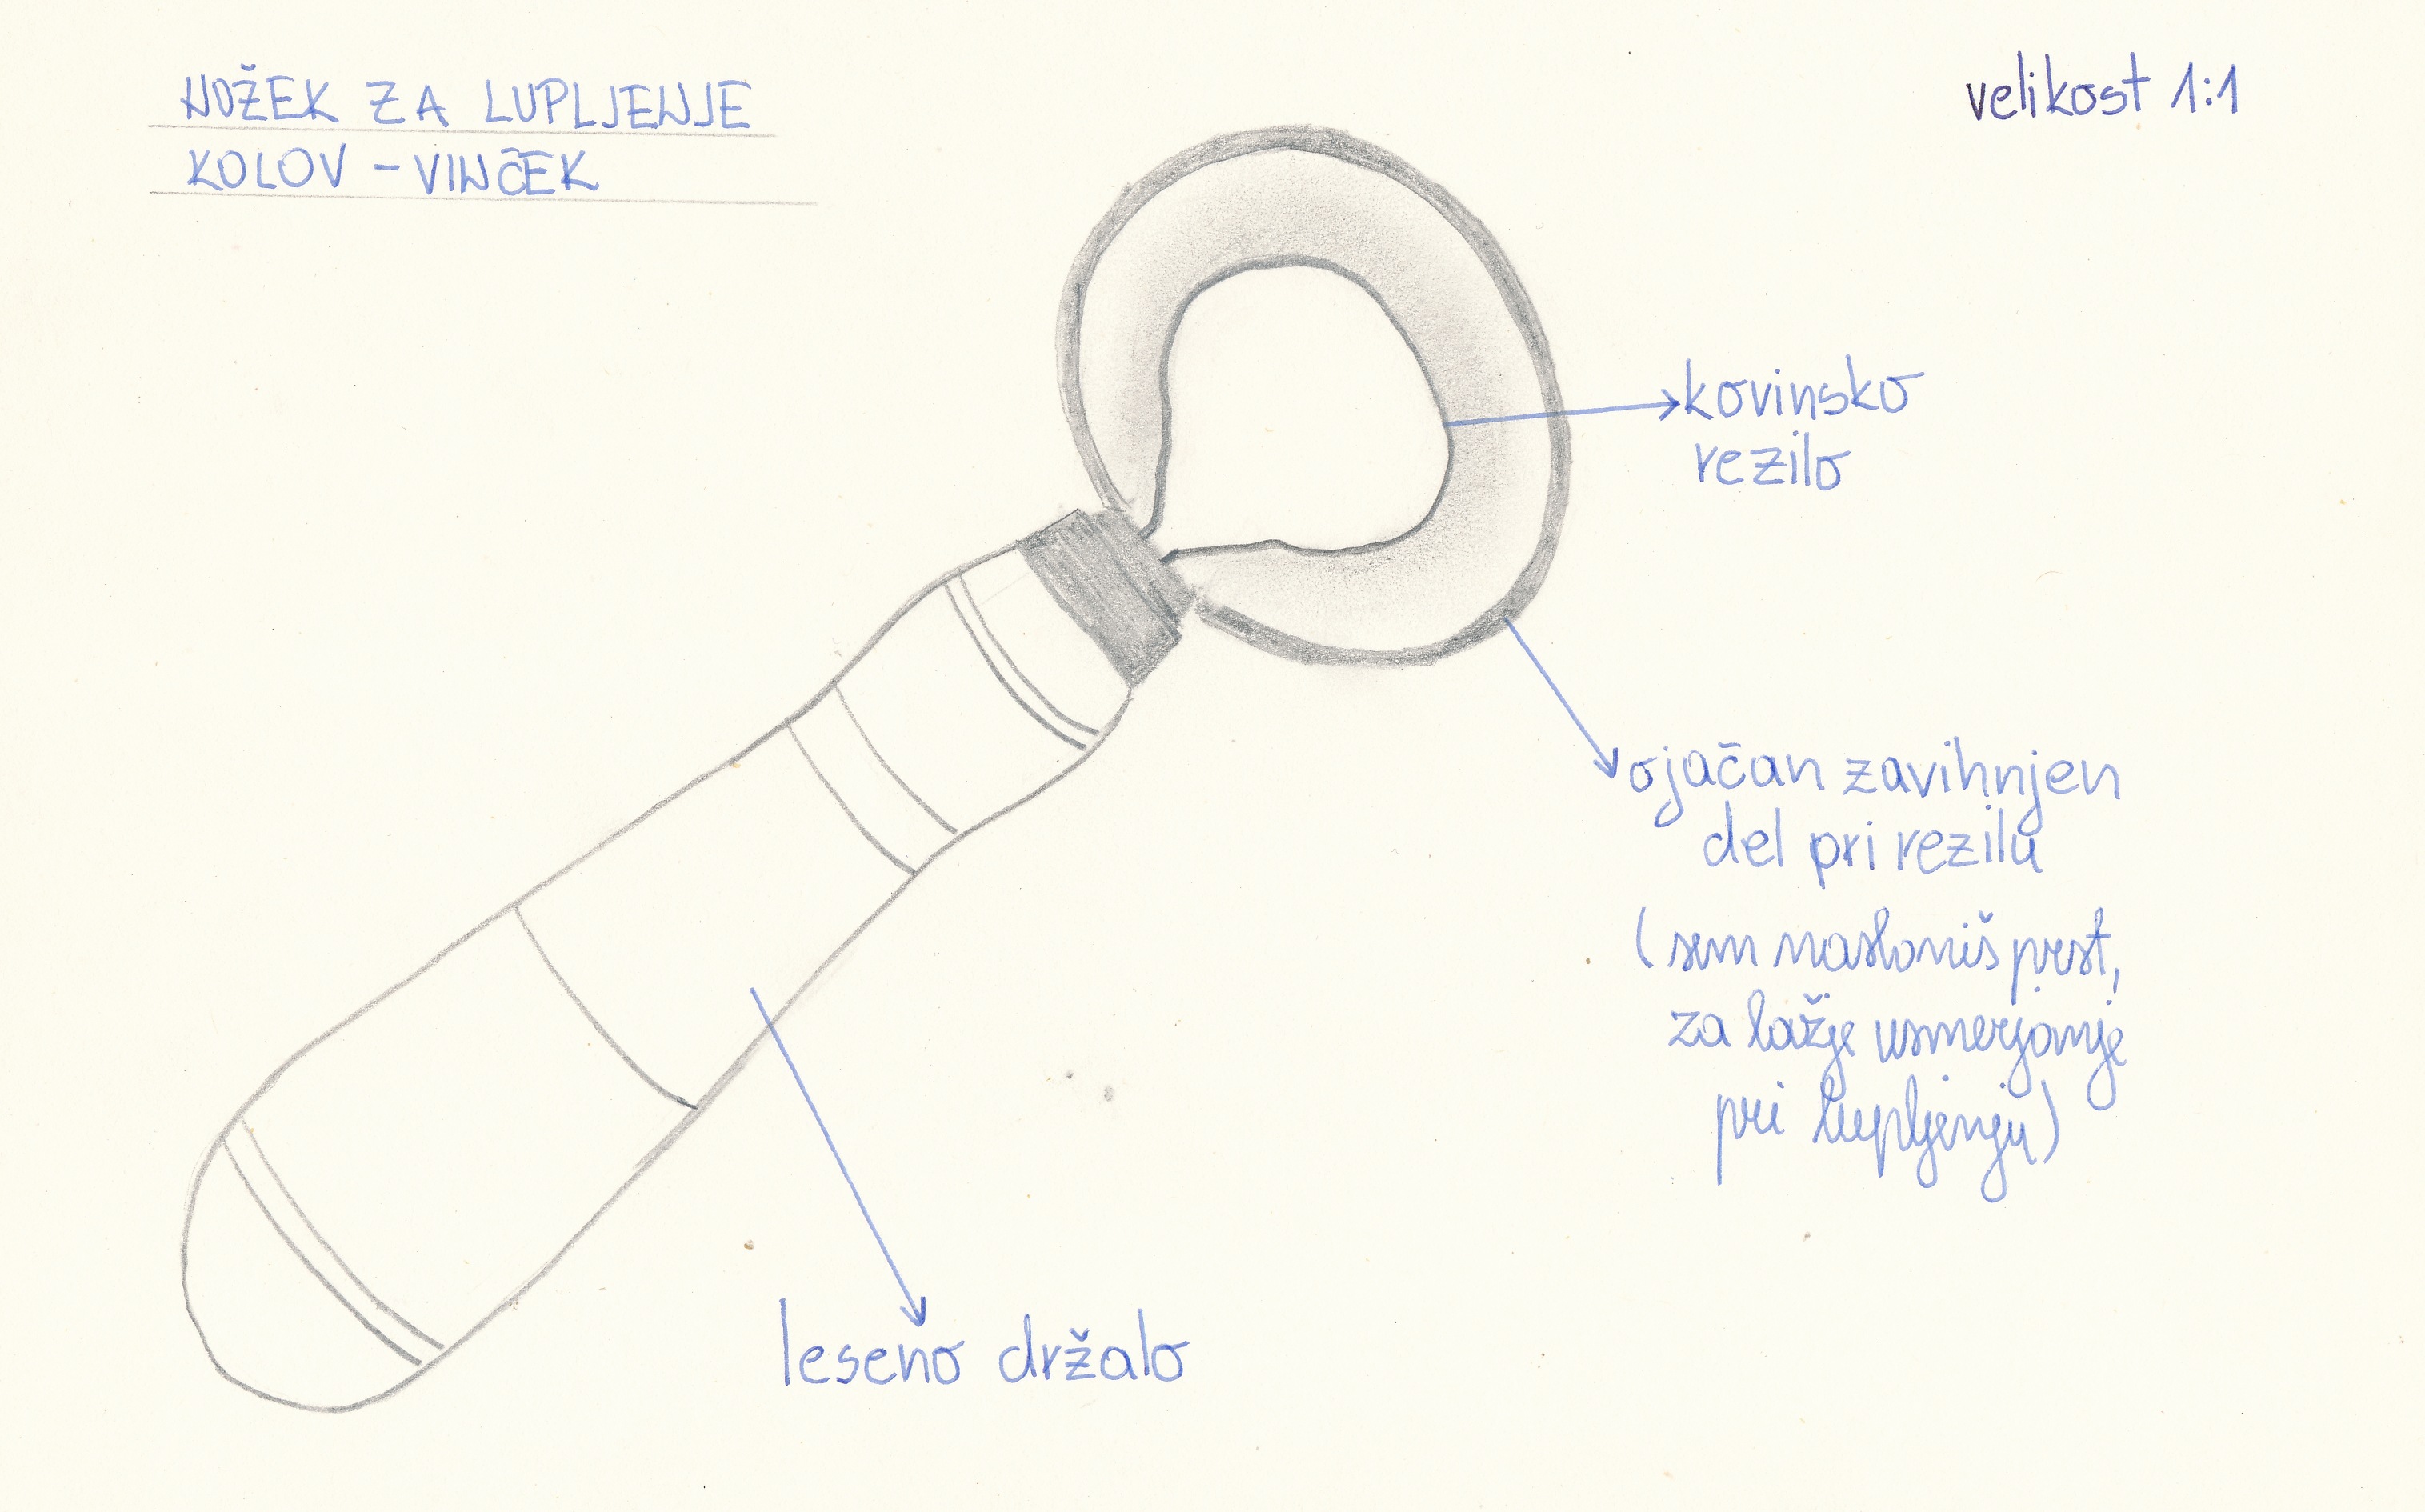 NOŽEK ZA LUPLJENJE
KOLOV - VINČEK
velikost 1:1
kovinsko
rezilo
ojačan zavihnjen
del pri rezilu
(sem nasloniš prst,
za lažje usmerjanje
pri lupljenju)
leseno držalo